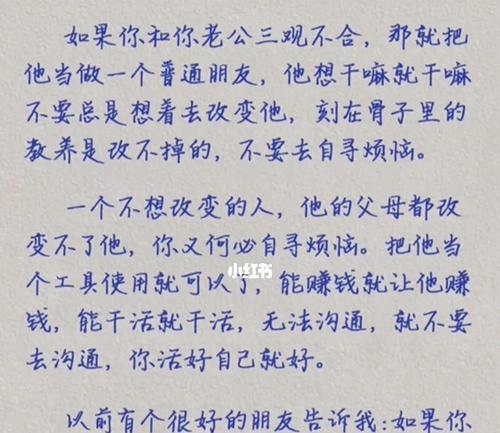 如果你和你老公三观不合，那就把
他当做一个普通朋友，他想干嘛就干嘛
不要总是想着去改变他，刻在骨子里的
教养是改不掉的，不要去自寻烦恼。
一个不想改变的人，他的父母都改
变不了他，你又何必自寻烦恼。把他当
个工具使用就可以了，能赚钱就让他赚
小红书
钱，能干活就干活，无法沟通，就不要
去沟通，你活好自己就好。
以前有个很好的朋友告诉我：如果你